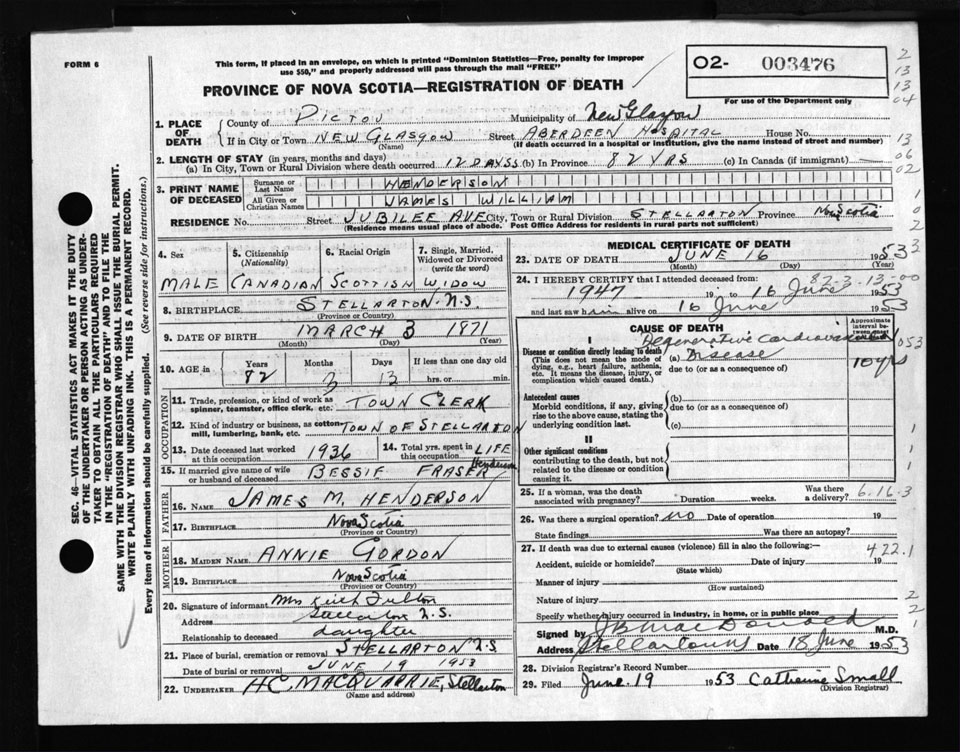 FORM 6
This form, if placed in an envelope, on which is printed "Dominion Statistics—Free, penalty for improper
use $50," and properly addressed will pass through the mail "FREE"
PROVINCE OF NOVA SCOTIA—REGISTRATION OF DEATH
O2- 003476
For use of the Department only
2
13
13
04
1. PLACE OF DEATH
County of PICTOU Municipality of New Glasgow
If in City or Town NEW GLASGOW Street ABERDEEN HOSPITAL House No.
(Name) (If death occurred in a hospital or institution, give the name instead of street and number)
13
06
02
2. LENGTH OF STAY (in years, months and days)
(a) In City, Town or Rural Division where death occurred 12 DAYSS (b) In Province 82 YRS (c) In Canada (if immigrant)
3. PRINT NAME OF DECEASED
Surname or Last Name HENDERSON
All Given or Christian Names JAMES WILLIAM
RESIDENCE No. Street JUBILEE AVE City, Town or Rural Division STELLARTON Province Nova Scotia
(Residence means usual place of abode. Post Office Address for residents in rural parts not sufficient)
1
0
2
3
4. Sex 5. Citizenship (Nationality) 6. Racial Origin 7. Single, Married, Widowed or Divorced (write the word)
MALE CANADIAN SCOTTISH WIDOW
8. BIRTHPLACE STELLARTON N.S.
(Province or Country)
9. DATE OF BIRTH MARCH 3 1871
(Month) (Day) (Year)
10. AGE in Years Months Days If less than one day old
82 3 13 hrs. or min.
OCCUPATION
11. Trade, profession or kind of work as spinner, teamster, office clerk, etc. TOWN CLERK
12. Kind of industry or business, as cotton mill, lumbering, bank, etc. TOWN OF STELLARTON
13. Date deceased last worked at this occupation 1936 14. Total yrs. spent in this occupation LIFE
15. If married give name of wife or husband of deceased BESSIE FRASER Henderson
FATHER
16. Name JAMES M. HENDERSON
17. Birthplace Nova Scotia
(Province or Country)
MOTHER
18. Maiden Name ANNIE GORDON
19. Birthplace Nova Scotia
(Province or Country)
20. Signature of informant Mrs Keith Fulton
Address Stellarton N.S.
Relationship to deceased daughter
21. Place of burial, cremation or removal STELLARTON N.S.
Date of burial or removal JUNE 19 1953
22. Undertaker H.C. MACQUARRIE, Stellarton
(Name and address)
MEDICAL CERTIFICATE OF DEATH
23. DATE OF DEATH JUNE 16 1953
(Month) (Day) (Year)
24. I HEREBY CERTIFY that I attended deceased from 82-3-13-00
1947 19 to 16 June 1953
and last saw him alive on 16 June 1953
CAUSE OF DEATH
Approximate interval between onset
I
Disease or condition directly leading to death (a) Degenerative Cardiovascular Disease 10 yrs
053
(This does not mean the mode of dying, e.g., heart failure, asthenia, etc. It means the disease, injury, or complication which caused death.)
due to (or as a consequence of)
Antecedent causes
Morbid conditions, if any, giving rise to the above cause, stating the underlying condition last.
(b)
due to (or as a consequence of)
(c)
II
Other significant conditions
contributing to the death, but not related to the disease or condition causing it.
1
1
1
25. If a woman, was the death associated with pregnancy? Duration weeks. Was there a delivery? 6.16.3
26. Was there a surgical operation? NO Date of operation 19
State findings Was there an autopsy?
27. If death was due to external causes (violence) fill in also the following: 422.1
Accident, suicide or homicide? Date of injury 19
(State which)
Manner of injury
(How sustained)
Nature of injury
Specify whether injury occurred in industry, in home, or in public place
2
2
1
Signed by J B MacDonald M.D.
Address Stellarton NS Date 18 June 1953
28. Division Registrar's Record Number
29. Filed June 19 1953 Catherine Small
(Division Registrar)
SEC. 46—VITAL STATISTICS ACT MAKES IT THE DUTY
OF THE UNDERTAKER OR PERSON ACTING AS UNDERTAKER
TO OBTAIN ALL THE PARTICULARS REQUIRED
IN THE "REGISTRATION OF DEATH" AND TO FILE THE
SAME WITH THE DIVISION REGISTRAR WHO SHALL ISSUE THE BURIAL PERMIT.
WRITE PLAINLY WITH UNFADING INK. THIS IS A PERMANENT RECORD.
Every item of information should be carefully supplied. (See reverse side for instructions.)